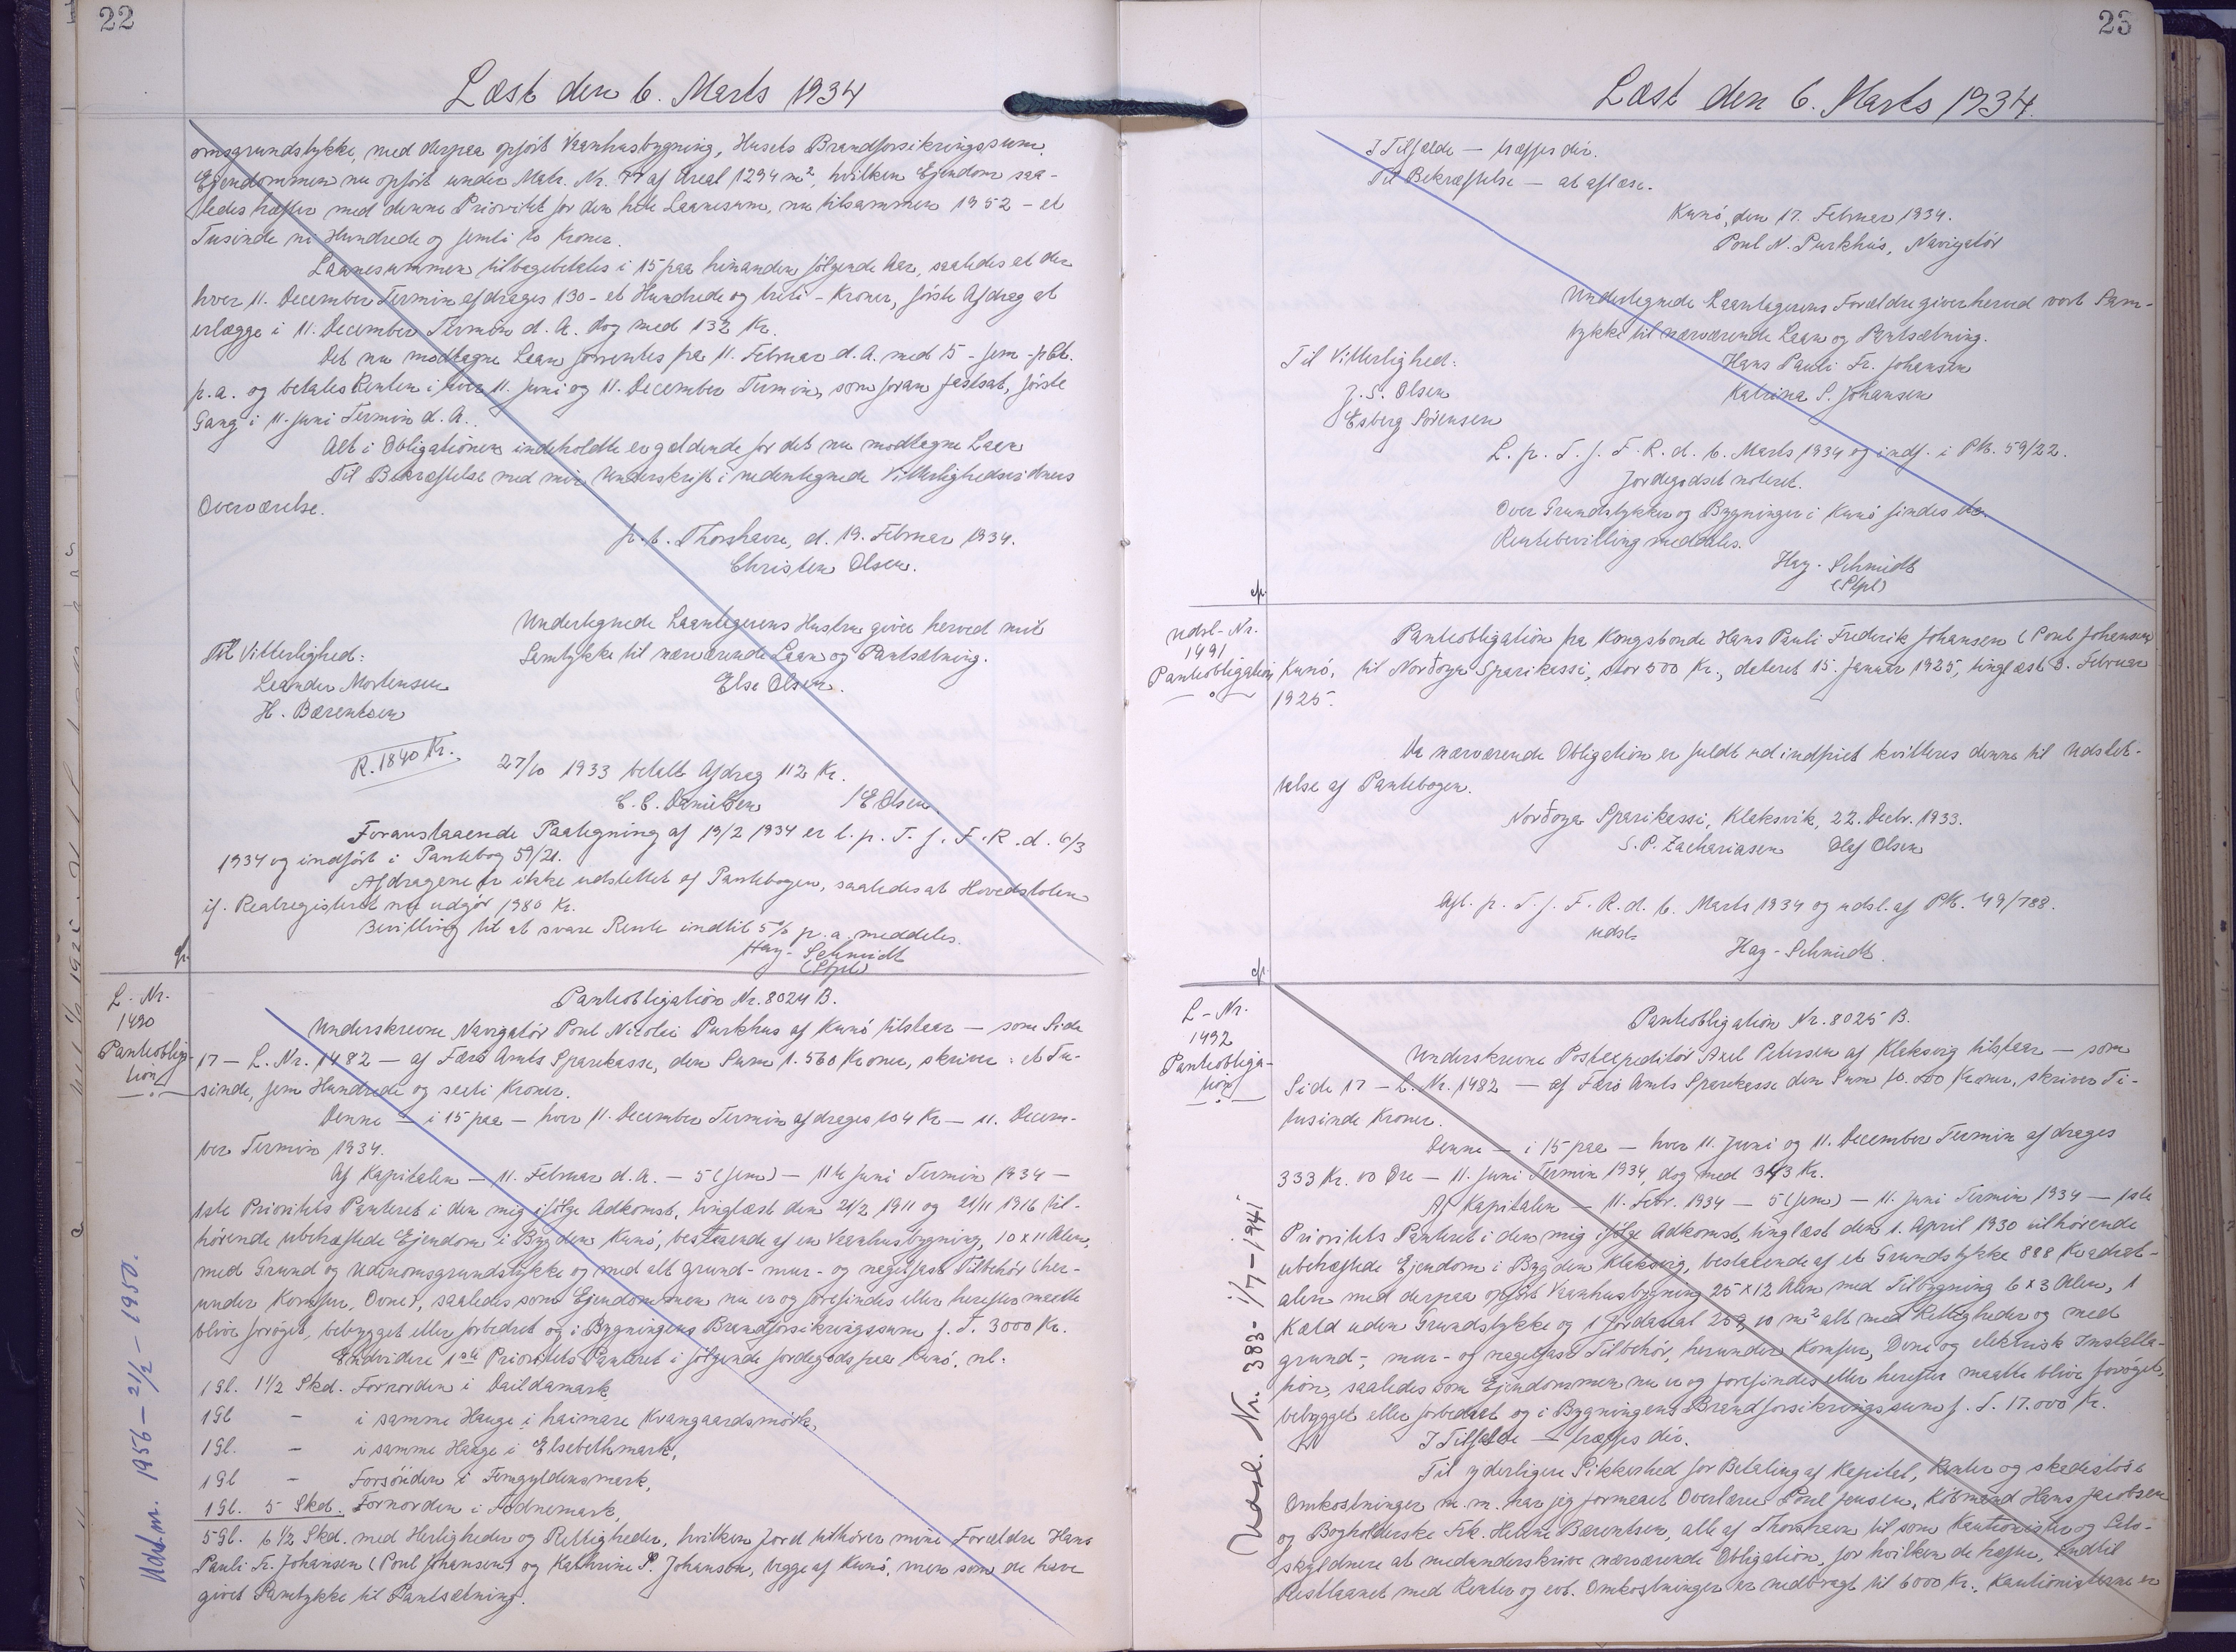 22
Læst den 6. Marts 1934
omsgrundstykke, med derpaa opført Vaanhusbygning, Husets Brandforsikringssum.
Ejendommen nu opført under Matr. Nr. 77 af Areal 1294 m², hvilken Ejendom saa-
ledes hæfter med denne Prioritet for den hele Laanesum, nu tilsammen 1952 - et
Tusinde ni Hundrede og femti to Kroner.
Laanesummen tilbagebetales i 15 paa hinanden følgende Aar, saaledes at der
hver 11. December Termin afdrages 130 - et Hundrede og treti - Kroner, første Afdrag at
erlægge i 11. December Termin d. A. dog med 132 Kr.
Det nu modtagne Laan forrentes fra 11. Februar d. A. med 5 - fem - pCt.
p.a. og betales Renten i hver 11. Juni og 11. December Termin, som foran fastsat, første
Gang i 11. Juni Termin d. A.
Alt i Obligationen indeholdte er gældende for det nu modtagne Laan
Til Bekræftelse med min Underskrift i nedentegnede Vitterlighedsvidners
Overværelse.
p. t. Thorshavn, d. 19. Februar 1934.
Christen Olsen.
Undertegnede Laantagerens Hustru giver herved mit
Til Vitterlighed: Samtykke til nærværende Laan og Pantsætning.
Leander Mortensen Else Olsen.
H. Bærentsen
R. 1840 Kr. 27/10 1933 betalt Afdrag 112 Kr.
C. C. Danielsen /E Olsen
Foranstaaende Paategning af 19/2 1934 er l. p. T. f. F. R. d. 6/3
1934 og indført i Pantebog 59/21.
Afdragene er ikke udslettet af Pantebogen, saaledes at Hovedstolen
if. Realregisteret nu udgør 1980 Kr.
Bevilling til at svare Rente indtil 5% p. a. meddeles.
Hay-Schmidt
(Stpl)
L-Nr.
1490
Panteobliga-
tion
Panteobligation Nr. 8024 B.
Underskrevne Navigatør Poul Nicolai Purkhus af Kunø tilstaar — som Side
17 — L. Nr. 1482 — af Færø Amts Sparekasse, den Sum 1.560 Kroner, skriver: et Tu-
sinde, fem Hundrede og sexti Kroner.
Denne — i 15 paa — hver 11. December Termin afdrages 104 Kr — 11. Decem-
ber Termin 1934.
Af Kapitalen — 11. Februar d. A. — 5 (fem) — 11te Juni Termin 1934 —
1ste Prioritets Panteret i den mig ifølge Adkomst, tinglæst den 21/2 1911 og 21/11 1916 til-
hørende ubehæftede Ejendom i Bygden Kunø, bestaaende af en Vaanhusbygning, 10 x 11 Alen,
med Grund og Udenomsgrundstykke og med alt grund- mur- og nagelfast Tilbehør (her-
under Komfur, Ovne), saaledes som Ejendommen nu er og forefindes eller herefter maatte
blive forøget, bebygget eller forbedret og i Bygningens Brandforsikringssum f. T. 3000 Kr.
Endvidere 1ste Prioritets Panteret i følgende Jordegods paa Kunø, nl.
1 Gl. 1½ Skd. Fornorden i Daildamark
1 Gl - i samme Hauge i haimare Kvangaardsmørk,
1 Gl. - i samme Hauge i Elsebethmark,
1 Gl - Forsønden i Femgyldensmark,
1 Gl. 5 Skd. Fornorden i Fødnemark,
5 Gl. 6½ Skd. med Herligheder og Rettigheder, hvilken Jord tilhører mine Forældre Hans
Pauli Fr. Johansen (Poul Johansen) og Kathrine S. Johansen, begge af Kunø, men som de have
givet Samtykke til Pantsætning.
Udsl.nr. 1956 - 21/2 - 1950.
23
Læst den 6. Marts 1934.
I Tilfælde — træffes dér.
Til Bekræftelse — at aflæse.
Kunø, den 17. Februar 1934.
Poul N. Purkhús, Navigatør
Undertegnede Laantagerens Forældre giver herved vort Sam-
tykke til nærværende Laan og Pantsætning.
Til Vitterlighed: Hans Pauli Fr. Johansen
J. S. Olsen Katrina S. Johansen
Esberg Sørensen
L. p. T. f. F. R. d. 6. Marts 1934 og indf. i Pb. 59/22.
Jordegodset noteret.
Over Grundstykker og Bygninger i Kunø findes
Rentebevilling meddeles.
Hay-Schmidt
(Stpl)
Udsl-Nr.
1491
Panteobligation
Panteobligation fra Kongsbonde Hans Pauli Frederik Johansen (Poul Johansen
Kunø, til Norðoya Sparikassi, stor 500 Kr., dateret 15. Januar 1925, tinglæst 3. Februar
1925.
Da nærværende Obligation er fuldt ud indfriet kvitteres denne til Udslet-
telse af Pantebogen.
Norðoya Sparikassi, Klaksvik, 22. Decbr. 1933.
S. P. Zachariasen Olaf Olsen
Afl. p. T. f. F. R. d. 6. Marts 1934 og udsl. af Pb. 49/788.
Udsl.
Hay-Schmidt.
L-Nr.
1492
Panteobliga-
tion
Panteobligation Nr. 8025 B.
Underskrevne Postexpeditør Axel Petersen af Klaksvig tilstaar — som
Side 17 — L. Nr. 1482 — af Færø Amts Sparekasse den Sum 10.000 Kroner, skriver Ti-
tusinde Kroner.
Denne — i 15 paa — hver 11. Juni og 11. December Termin afdrages
333 Kr. 00 Øre — 11. Juni Termin 1934, dog med 343 Kr.
Af Kapitalen — 11. Febr. 1934 — 5 (fem) — 11. Juni Termin 1934 — 1ste
Prioritets Panteret i den mig ifølge Adkomst, tinglæst den 1. April 1930 tilhørende
ubehæftede Ejendom i Bygden Klaksvig, bestaaende af et Grundstykke 888 Kvadrat-
alen med derpaa opført Vaanhusbygning 25 x 12 Alen med Tilbygning 6 x 3 Alen, 1
Kald uden Grundstykke og 1 Jordareal 259,10 m² alt med Rettigheder og med
grund-, mur- og nagelfast Tilbehør, herunder Komfur, Ovne og elektrisk Installa-
tion, saaledes som Ejendommen nu er og forefindes eller herefter maatte blive forøget,
bebygget eller forbedret og i Bygningens Brandforsikringssum f. T. 17.000 Kr.
I Tilfælde — træffes dér.
Til yderligere Sikkerhed for Betaling af Kapital, Renter og skadesløse
Omkostninger m. m. har jeg formaaet Overlærer Poul Jensen, Købmand Hans Jacobsen
og Bogholderske Frk. Helene Bærentsen, alle af Thorshavn til som Kautionister og Selv-
skyldnere at medunderskrive nærværende Obligation, for hvilken de hæfte, indtil
Restlaanet med Renter og evt. Omkostninger er nedbragt til 6000 Kr. Kautionisterne er
Udsl. Nr. 383 - 1/7 - 1941